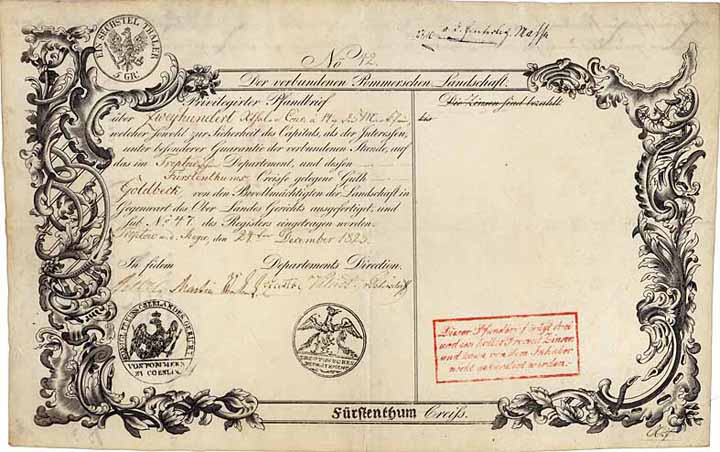 EIN SECHSTEL THALER
5 GR.
No. 42.
Der verbundenen Pommerschen Landschaft.
Privilegirter Pfandbrief
über Zweyhundert
welcher sowohl zur Sicherheit des Capitals, als der Interessen,
unter besonderer Guarantie der verbundenen Stände, auf
das im Departement, und dessen
Fürstenthums Creisse gelegene Guth
Goldbeck, von den Bevollmächtigten der Landschaft in
Gegenwart des Ober Landes Gerichts ausgefertiget, und
sub No. 47. des Registers eingetragen worden.
den 24ten December 1823.
In fidem Departements Direction.
VON POMMERN
ZU COESLIN
DEPARTEMENT
Die Zinsen sind bezahlt
bis
Dieser Pfandbrief trägt drei
und ein halb Procent Zinsen
und kann von dem Inhaber
nicht gekündigt werden.
Fürstenthum Creiss.